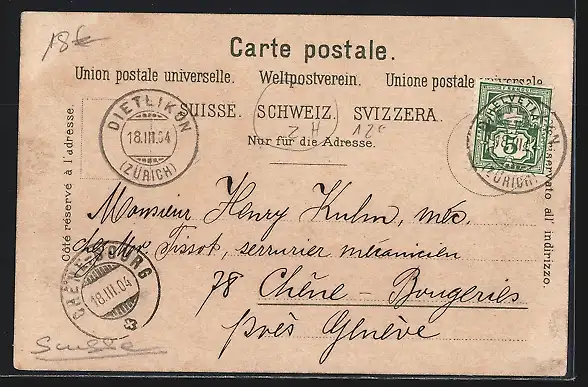 18€
Carte postale.
Union postale universelle. Weltpostverein. Unione postale universale
SUISSE. SCHWEIZ. SVIZZERA.
2 H 12c
Nur für die Adresse.
Côté réservé à l'adresse.
DIETLIKON
18.III.04
(ZÜRICH)
HELVETIA
5
(ZÜRICH)
riservato all' indirizzo.
Monsieur Henry Kuhn, méc.
chez Mor Tissot, serrurier mécanicien
78 Chêne-Bougeries
près Genève
CHÊNE-BOURG
18.III.04
Suisse